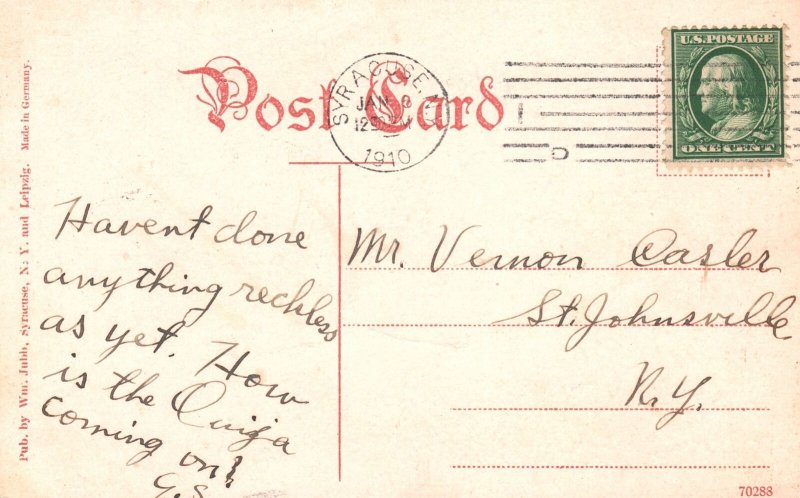 Post Card
SYRACUSE, N.Y.
JAN
1910
D
U.S.POSTAGE
ONE CENT
Havent done
anything reckless
as yet. How
is the Quija
coming on?
G.S.
Mr. Vernon Casler
St. Johnsville
N.Y.
Pub. by Wm. Jubb, Syracuse, N. Y. and Leipzig. Made in Germany.
70288